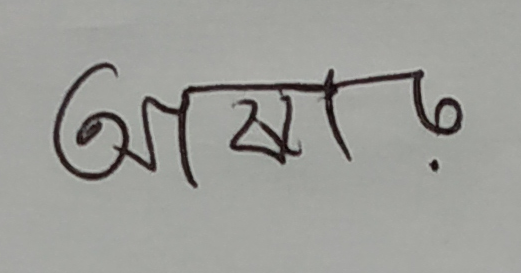 আষাঢ়